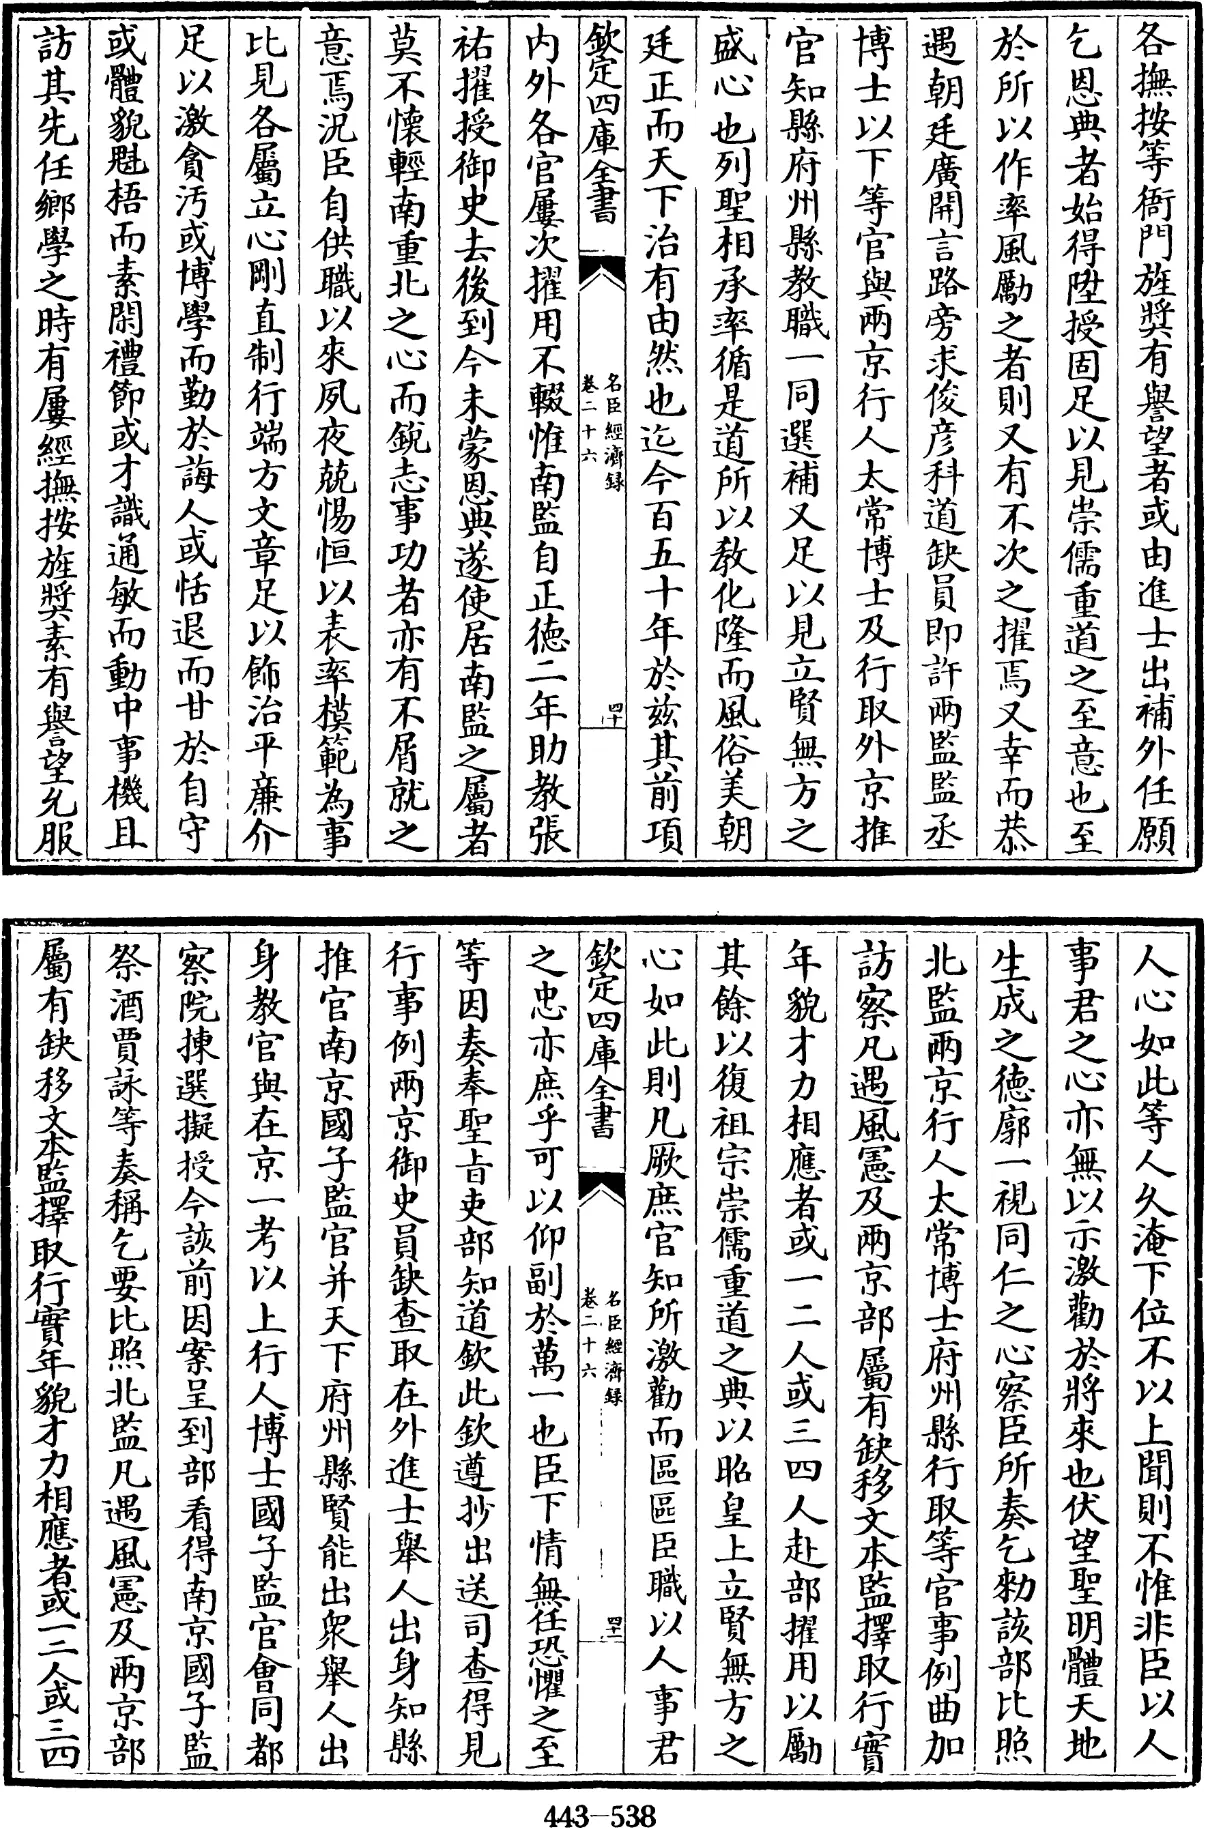 各撫按等衙門旌奬有譽望者或由進士出補外任願
乞恩典者始得陞授固足以見崇儒重道之至意也至
於所以作率風勵之者則又有不次之擢焉又幸而恭
遇朝廷廣開言路旁求俊彦科道缺員即許兩監監丞
博士以下等官與兩京行人太常博士及行取外京推
官知縣府州縣教職一同選補又足以見立賢無方之
盛心也列聖相承率循是道所以教化隆而風俗美朝
廷正而天下治有由然也迄今百五十年於兹其前項
欽定四庫全書
名臣經濟録
卷二十六
四十
内外各官屢次擢用不輟惟南監自正德二年助教張
祐擢授御史去後到今未蒙恩典遂使居南監之屬者
莫不懷輕南重北之心而銳志事功者亦有不屑就之
意焉況臣自供職以來夙夜兢惕恒以表率模範為事
比見各屬立心剛直制行端方文章足以飾治平亷介
足以激貪汚或博學而勤於誨人或恬退而甘於自守
或體貌魁梧而素閑禮節或才識通敏而動中事機且
訪其先任鄉學之時有屢經撫按旌奬素有譽望允服
人心如此等人久淹下位不以上聞則不惟非臣以人
事君之心亦無以示激勸於將來也伏望聖明體天地
生成之德廓一視同仁之心察臣所奏乞勑該部比照
北監兩京行人太常博士府州縣行取等官事例曲加
訪察凡遇風憲及兩京部屬有缺移文本監擇取行實
年貌才力相應者或一二人或三四人赴部擢用以勵
其餘以復祖宗崇儒重道之典以昭皇上立賢無方之
心如此則凡厥庶官知所激勸而區區臣職以人事君
欽定四庫全書
名臣經濟録
卷二十六
四十一
之忠亦庶乎可以仰副於萬一也臣下情無任恐懼之至
等因奏奉聖旨吏部知道欽此欽遵抄出送司查得見
行事例兩京御史員缺查取在外進士舉人出身知縣
推官南京國子監官并天下府州縣賢能出衆舉人出
身教官與在京一考以上行人博士國子監官會同都
察院揀選擬授今該前因案呈到部看得南京國子監
祭酒賈詠等奏稱乞要比照北監凡遇風憲及兩京部
屬有缺移文本監擇取行實年貌才力相應者或一二人或三四
443-538